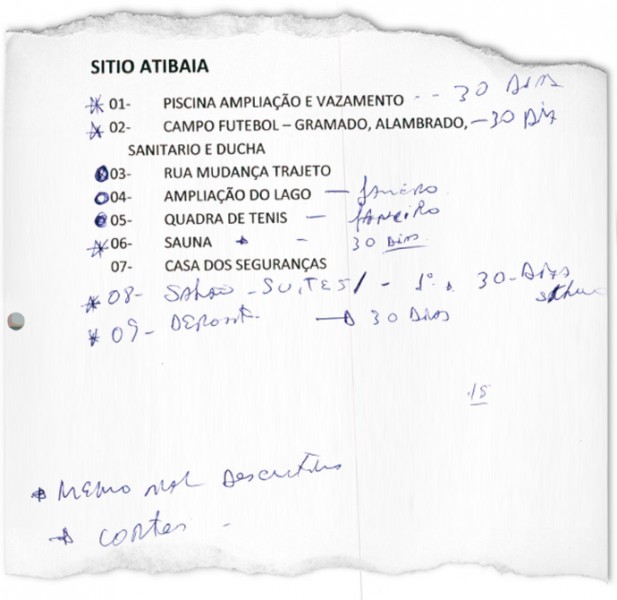 SITIO ATIBAIA
01- PISCINA AMPLIAÇÃO E VAZAMENTO -- 30 DIAS
02- CAMPO FUTEBOL – GRAMADO, ALAMBRADO, - 30 DIAS
SANITARIO E DUCHA
03- RUA MUDANÇA TRAJETO
04- AMPLIAÇÃO DO LAGO - JANEIRO
05- QUADRA DE TENIS - JANEIRO
06- SAUNA - 30 DIAS
07- CASA DOS SEGURANÇAS
08- SALÃO - SUITES / - 1º 30-DIAS
09- 30 DIAS
15
MEMORIAL
CORTES -